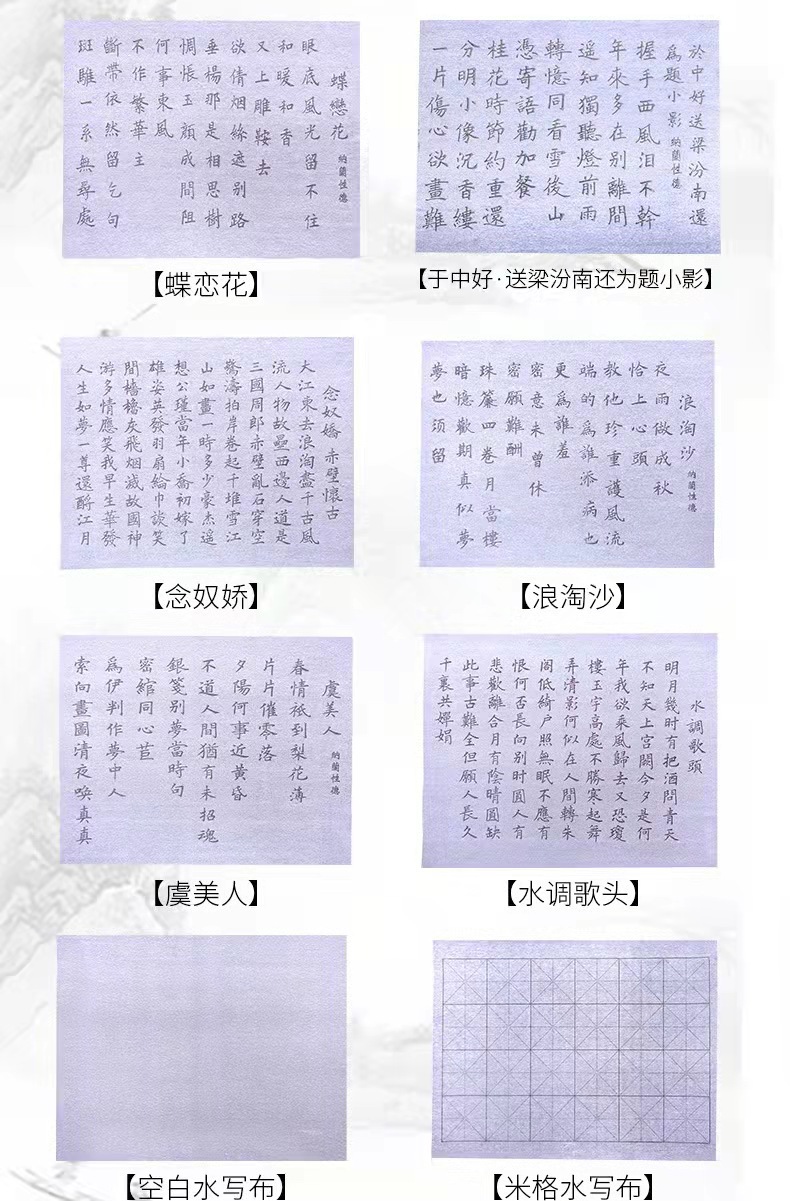 蝶戀花 納蘭性德
眼底風光留不住
和暖和香
又上雕鞍去
欲倩烟絲遮别路
垂楊那是相思樹
惆悵玉顔成間阻
何事東風
不作繁華主
斷帶依然留乞句
斑騅一系無尋處
【蝶恋花】
於中好送梁汾南還
為題小影 納蘭性德
握手西風泪不幹
年來多在别離間
遥知獨聽燈前雨
轉憶同看雪後山
憑寄語勸加餐
桂花時節約重還
分明小像沉香縷
一片傷心欲畫難
【于中好·送梁汾南还为题小影】
念奴嬌 赤壁懷古
大江東去浪淘盡千古風
流人物故壘西邊人道是
三國周郎赤壁亂石穿空
驚濤拍岸卷起千堆雪江
山如畫一時多少豪杰遥
想公瑾當年小喬初嫁了
雄姿英發羽扇綸巾談笑
間檣櫓灰飛烟滅故國神
游多情應笑我早生華發
人生如夢一尊還酹江月
【念奴娇】
浪淘沙 納蘭性德
夜雨做成秋
恰上心頭
教他珍重護風流
端的為誰添病也
更為誰羞
密意未曾休
密願難酬
珠簾四卷月當樓
暗憶歡期真似夢
夢也须留
【浪淘沙】
虞美人 納蘭性德
春情衹到梨花薄
片片催零落
夕陽何事近黄昏
不道人間猶有未招魂
銀箋别夢當時句
密綰同心苣
為伊判作夢中人
索向畫圖清夜唤真真
【虞美人】
水調歌頭
明月幾时有把酒問青天
不知天上宫闕今夕是何
年我欲乘風歸去又恐瓊
樓玉宇高處不勝寒起舞
弄清影何似在人間轉朱
閣低綺户照無眠不應有
恨何否長向别时圓人有
悲歡離合月有陰晴圓缺
此事古難全但願人長久
千裏共嬋娟
【水调歌头】
【空白水写布】
【米格水写布】